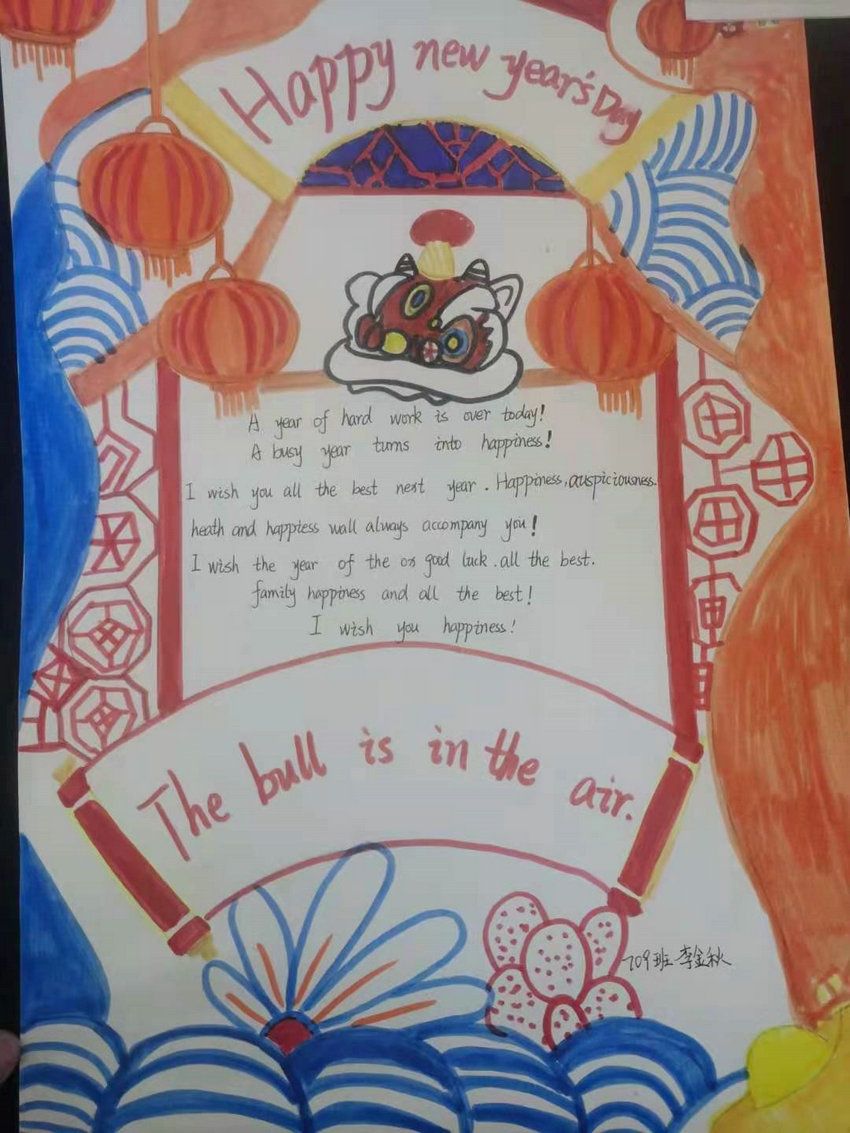 Happy new year's Day
A year of hard work is over today!
A busy year turns into happiness!
I wish you all the best next year. Happiness, auspiciousness.
heath and happiess wall always accompany you!
I wish the year of the ox good luck. all the best.
family happiness and all the best!
I wish you happiness!
The bull is in the air.
709班 李金秋